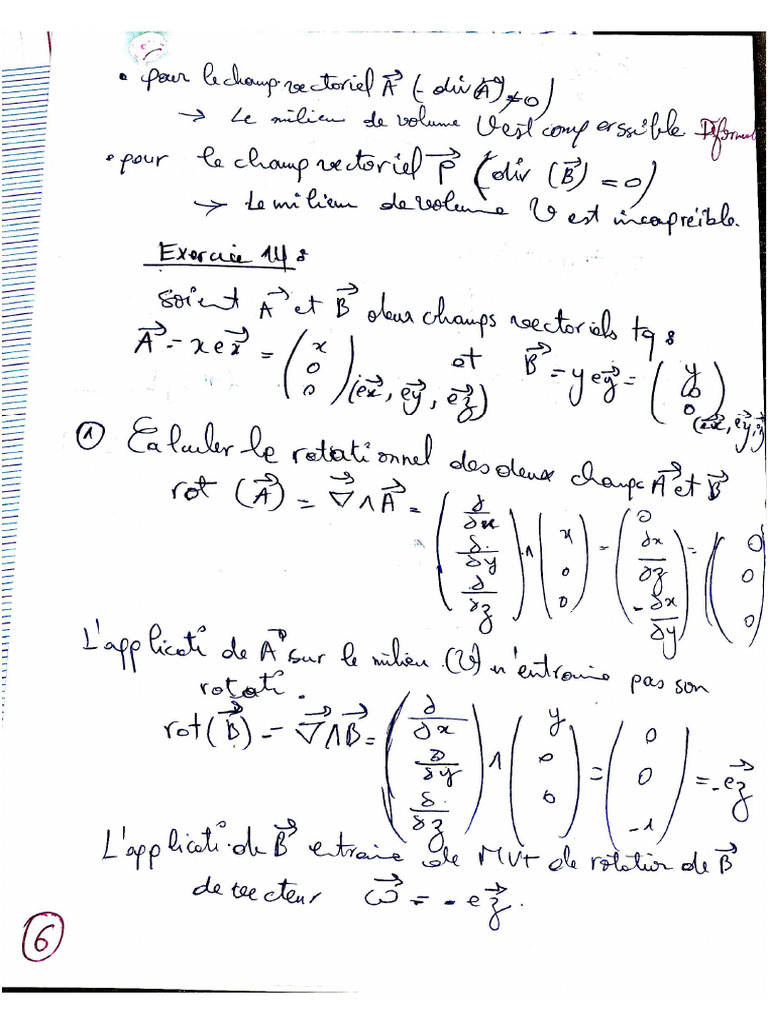 • pour le champ vectoriel A⃗ (- div(A⃗) ≠ 0)
→ Le milieu de volume V est comperssible Déformé
• pour le champ vectoriel P⃗ (div (B⃗) = 0)
→ Le milieu de volume V est incopréible.
Exercice 14 :
Soient A⃗ et B⃗ deux champs vectoriels tq :
A⃗ = x ex⃗ = (x 0 0)(ex⃗, ey⃗, ez⃗) et B⃗ = y ey⃗ = (y 0 0)(ex⃗, ey⃗, z⃗)
① Calculer le rotationnel des deux champs A⃗ et B⃗
rot (A⃗) = ∇⃗ ∧ A⃗ = (∂/∂x ∂/∂y ∂/∂z) ∧ (x 0 0) = (0 ∂x/∂z -∂x/∂y) = (0 0 0)
L'applicati de A⃗ sur le milieu (V) n'entraine pas son
rotati.
rot(B⃗) = ∇⃗ ∧ B⃗ = (∂/∂x ∂/∂y ∂/∂z) ∧ (y 0 0) = (0 0 -1) = -ez⃗
L'applicati de B⃗ entraine de MVt de rotation de B⃗
de vecteur ω⃗ = - ez⃗.
6